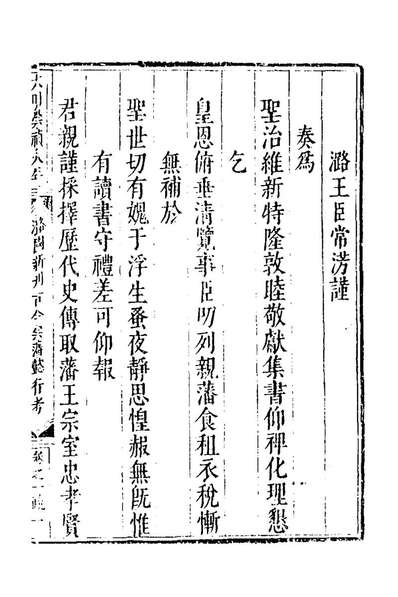 潞王臣常淓謹
奏為
聖治維新特隆敦睦敬獻集書仰裨化理懇
乞
皇恩俯垂清覽事臣叨列親藩食租衣稅慚
無補於
聖世切有媿于浮生蚤夜靜思惶赧無旣惟
有讀書守禮差可仰報
君親謹採擇歷代史傳取藩王宗室忠孝賢
潞國新刊古今宗藩懿行考